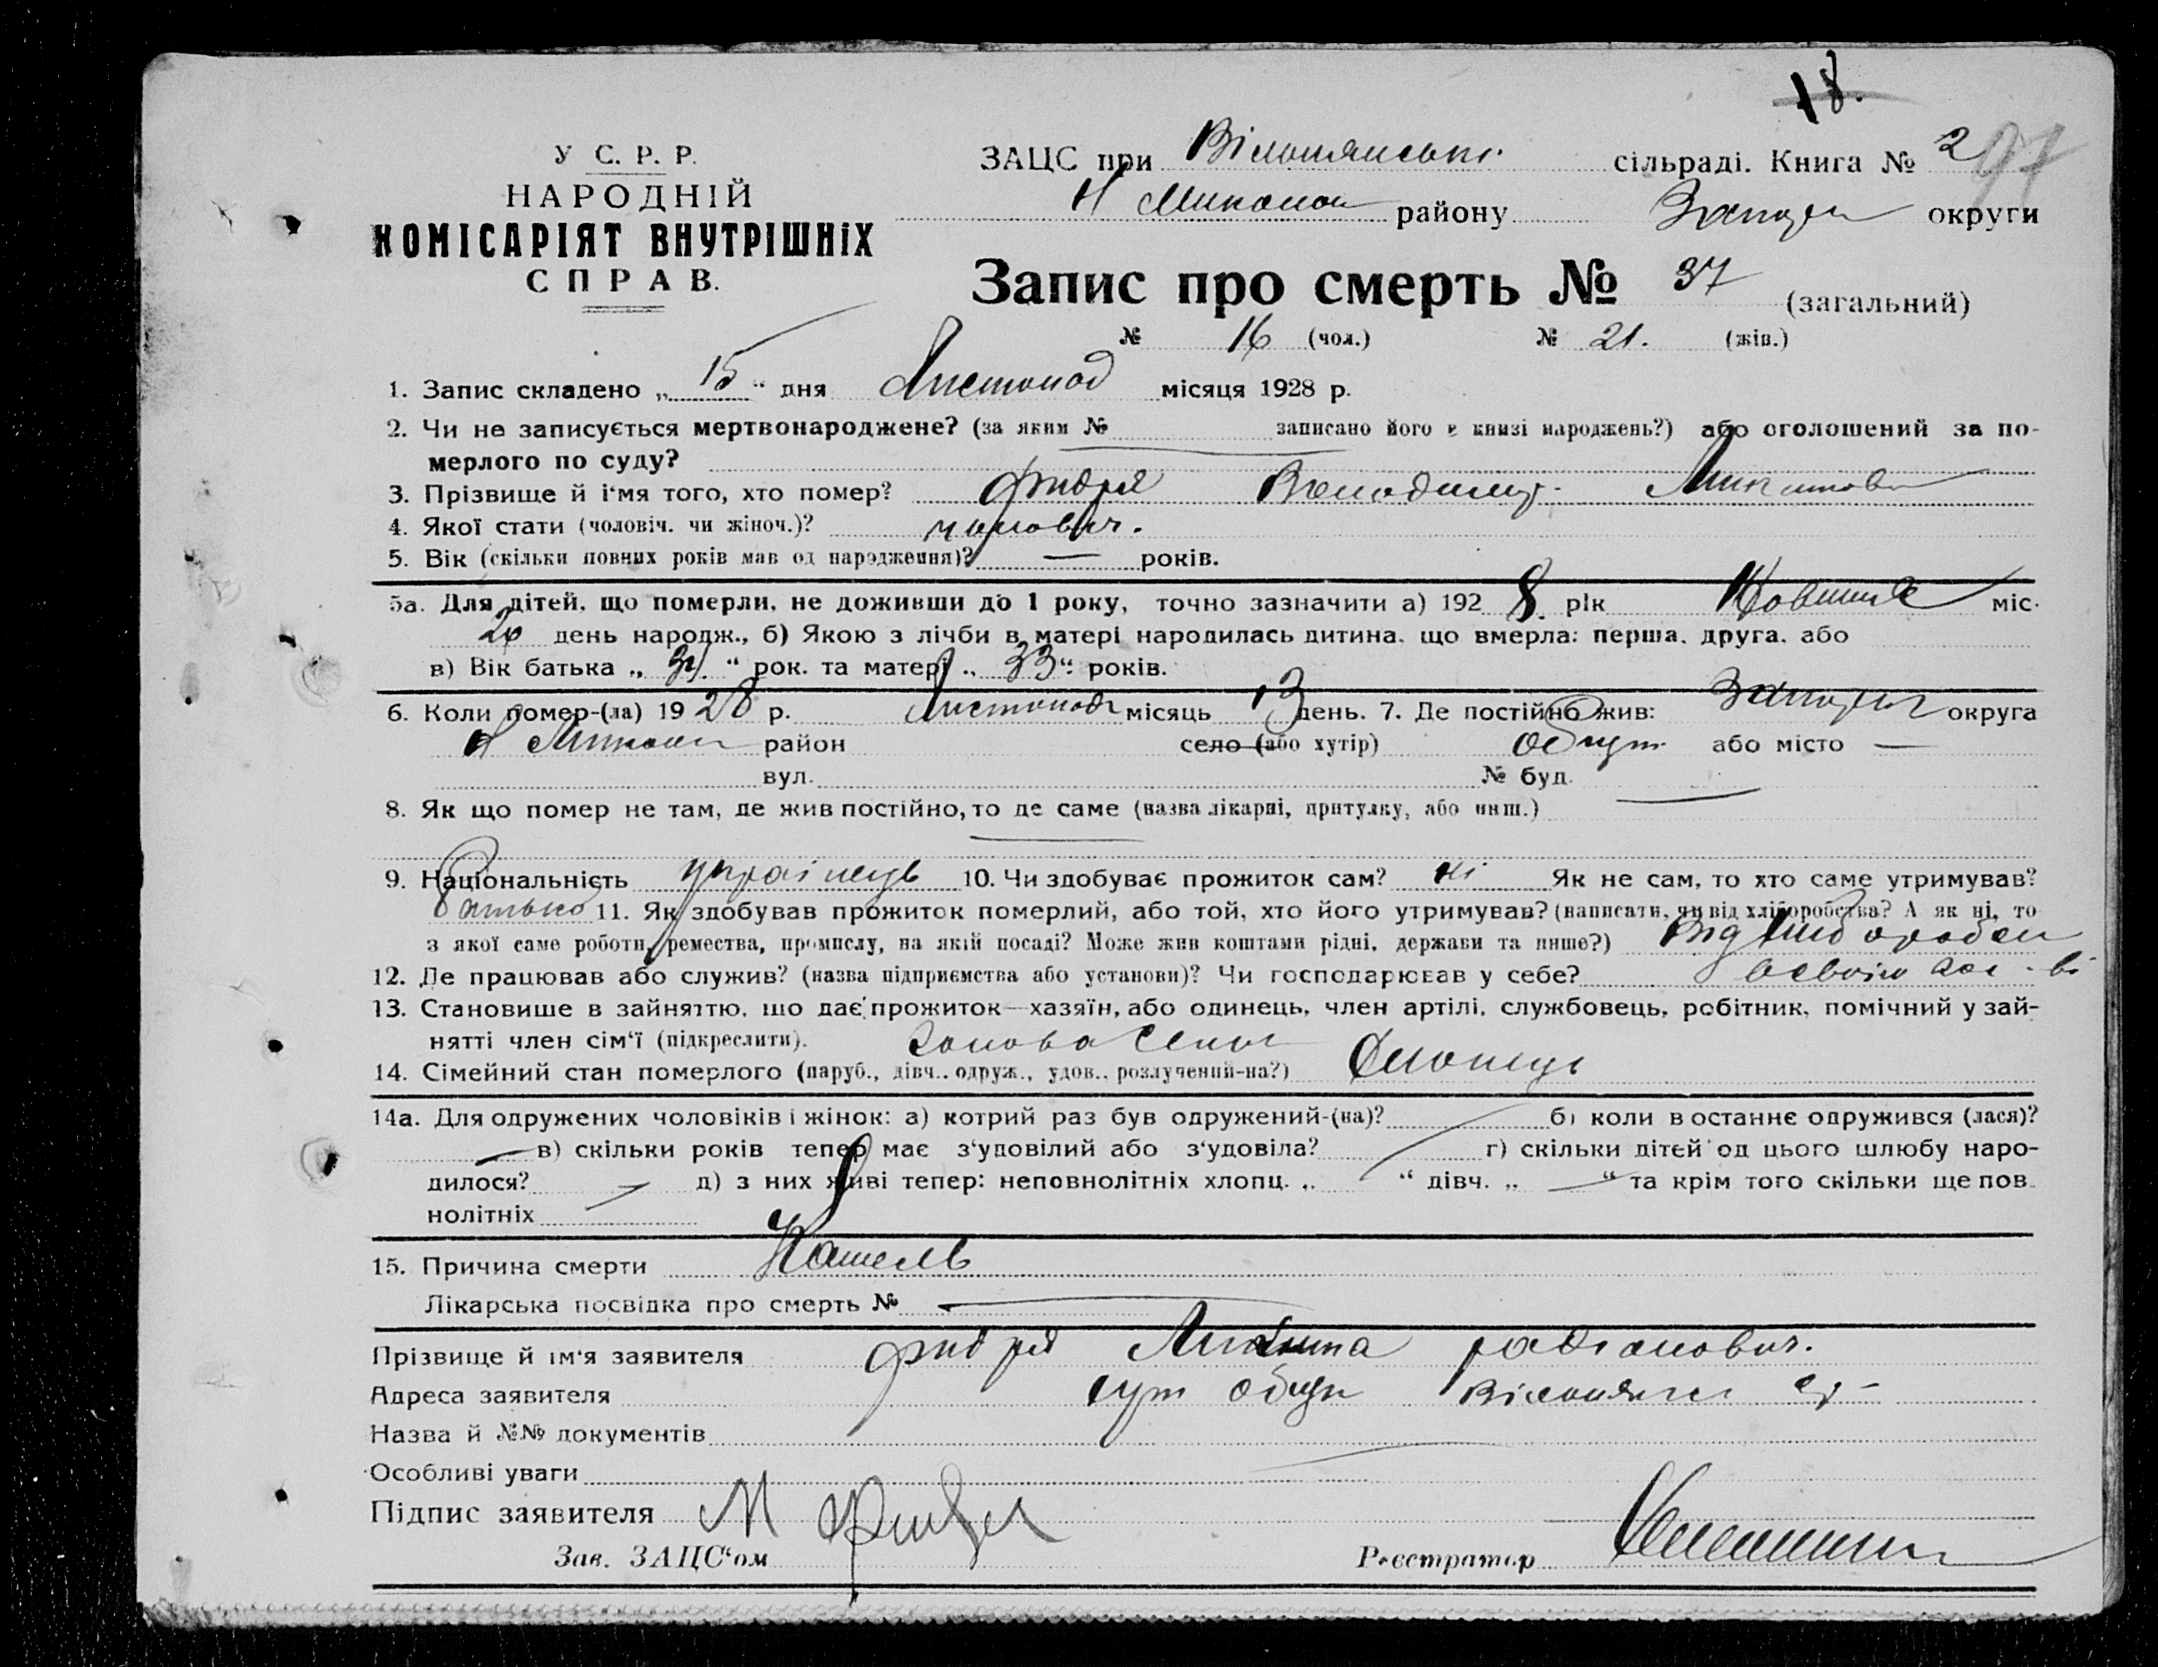 18.
У С. Р. Р.
НАРОДНІЙ
КОМІСАРІЯТ ВНУТРІШНІХ
СПРАВ.
ЗАЦС при сільраді. Книга № 2 97
Н району округи
Запис про смерть № 37 (загальний)
№ 16 (чол.) № 21. (жін.)
1. Запис складено „ 15 “ дня Листопад місяця 1928 р.
2. Чи не записується мертвонароджене? (за яким № записано його в книзі народжень?) або оголошений за по-
мерлого по суду?
3. Прізвище й і'мя того, хто помер? Фидря Володимир
4. Якої стати (чоловіч. чи жіноч.)? чоловіч.
5. Вік (скільки повних років мав од народження)? — років.
5а. Для дітей, що померли, не доживши до 1 року, точно зазначити а) 192 8 рік Жовтня міс.
20 день народж., б) Якою з лічби в матері народилась дитина, що вмерла: перша, друга, або
в) Вік батька „ “ рок. та матері „ 33 “ років.
6. Коли помер-(ла) 19 28 р. Листопада місяць 13 день. 7. Де постійно жив: округа
Н район село (або хутір) або місто —
вул. № буд.
8. Як що помер не там, де жив постійно, то де саме (назва лікарні, притулку, або инш.) —
9. Національність українець 10. Чи здобуває прожиток сам? ні Як не сам, то хто саме утримував?
батько 11. Як здобував прожиток померлий, або той, хто його утримував? (написати, чи від хліборобства? А як ні, то
з якої саме роботи, ремества, промислу, на якій посаді? Може жив коштами рідні, держави та инше?) Від
12. Де працював або служив? (назва підприємства або установи)? Чи господарював у себе? в своїм
13. Становише в зайняттю, що дає прожиток—хазяїн, або одинець, член артілі, службовець, робітник, помічний у зай-
нятті член сім'ї (підкреслити). Голова
14. Сімейний стан померлого (паруб., дівч., одруж., удов., розлучений-на?) Хлопець
14а. Для одружених чоловіків і жінок: а) котрий раз був одружений-(на)? б) коли в останнє одружився (лася)?
— в) скільки років тепер має з'удовілий або з'удовіла? г) скільки дітей од цього шлюбу наро-
дилося? — д) з них живі тепер: неповнолітніх хлопц. „ “ дівч. „ — “ та крім того скільки ще пов-
нолітніх
15. Причина смерти Кашель
Лікарська посвідка про смерть № —
Прізвище й ім'я заявителя Фидря Микита Радіонович.
Адреса заявителя хут
Назва й №№ документів
Особливі уваги —
Підпис заявителя М Фидря
Зав. ЗАЦС'ом Реєстратор